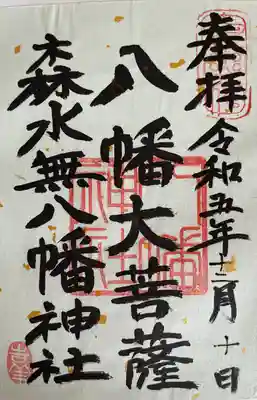 奉拝
令和五年十二月十日
八幡大菩薩
森水無八幡神社